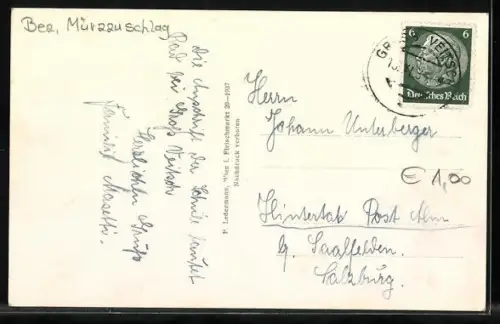 Bez. Mürzzuschlag
Die Anschrift der Schule lautet
Rad bei Groß Veitsch
Herzlichen Gruß
Familie
P. Ledermann, Wien I. Fleischmarkt 20-1937
Nachdruck verboten
GROSS VEITSCH
6 6
Deutsches Reich
Herrn
Johann Unterberger
€ 1,00
Hintertal Post Alm
b. Saalfelden.
Salzburg.